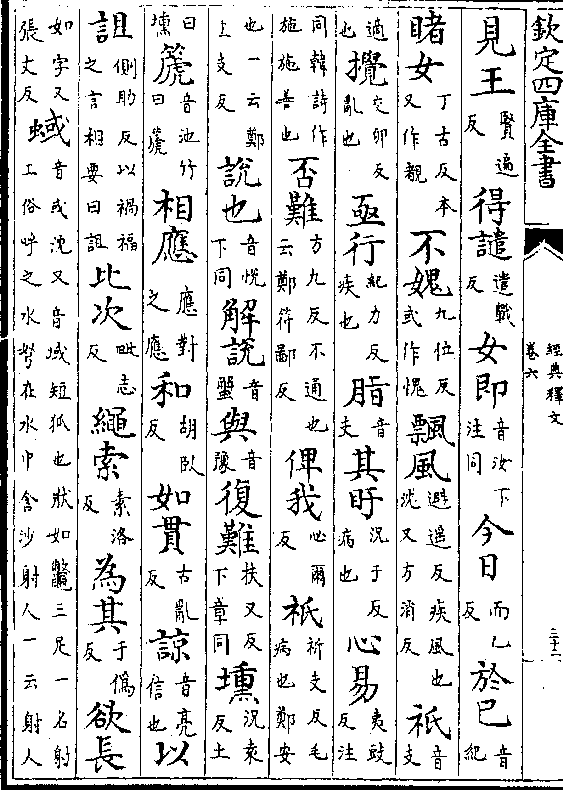 欽定四庫全書
經典釋文
卷六
三十二
見王賢遍反得譴遣戰反女即音汝下注同今日而乙反於已音紀
睹女丁古反本又作覩不媿九位反或作愧飄風避遥反疾風也沈又方消反祗音支
適也攪交卯反亂也亟行紀力反疾也脂音支其盱況于反病也心易夷豉反注
同韓詩作施施善也否難方九反不通也云鄭符鄙反俾我必爾反祇祈支反毛病也鄭安
也一云鄭上支反說也音悅下同解說音蟹與音豫復難扶又反下章同壎況袁反土
曰壎篪音池竹曰篪相應應對之應和胡臥反如貫古亂反諒音亮信也以
詛側助反以禍福之言相要曰詛比次毗志反繩索素洛反為其于偽反欲長
如字又張丈反蜮音或沈又音域短狐也狀如鼈三足一名射工俗呼之水弩在水中含沙射人一云射人